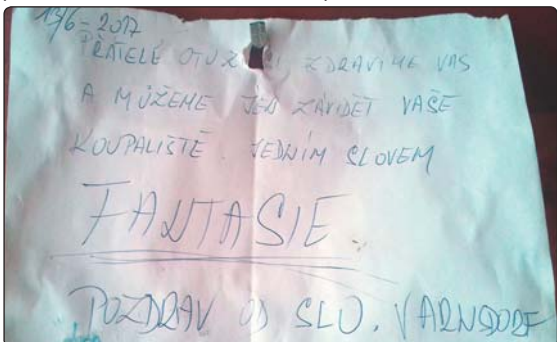 13/6-2017
PŘÁTELÉ OTUŽ CI ZDRAVÍME VÁS
A MŮŽEME JEN ZÁVIDĚT VAŠE
KOUPALIŠTĚ. JEDNÍM SLOVEM
FANTASIE.
POZDRAV OD SLU. VARNSDORF